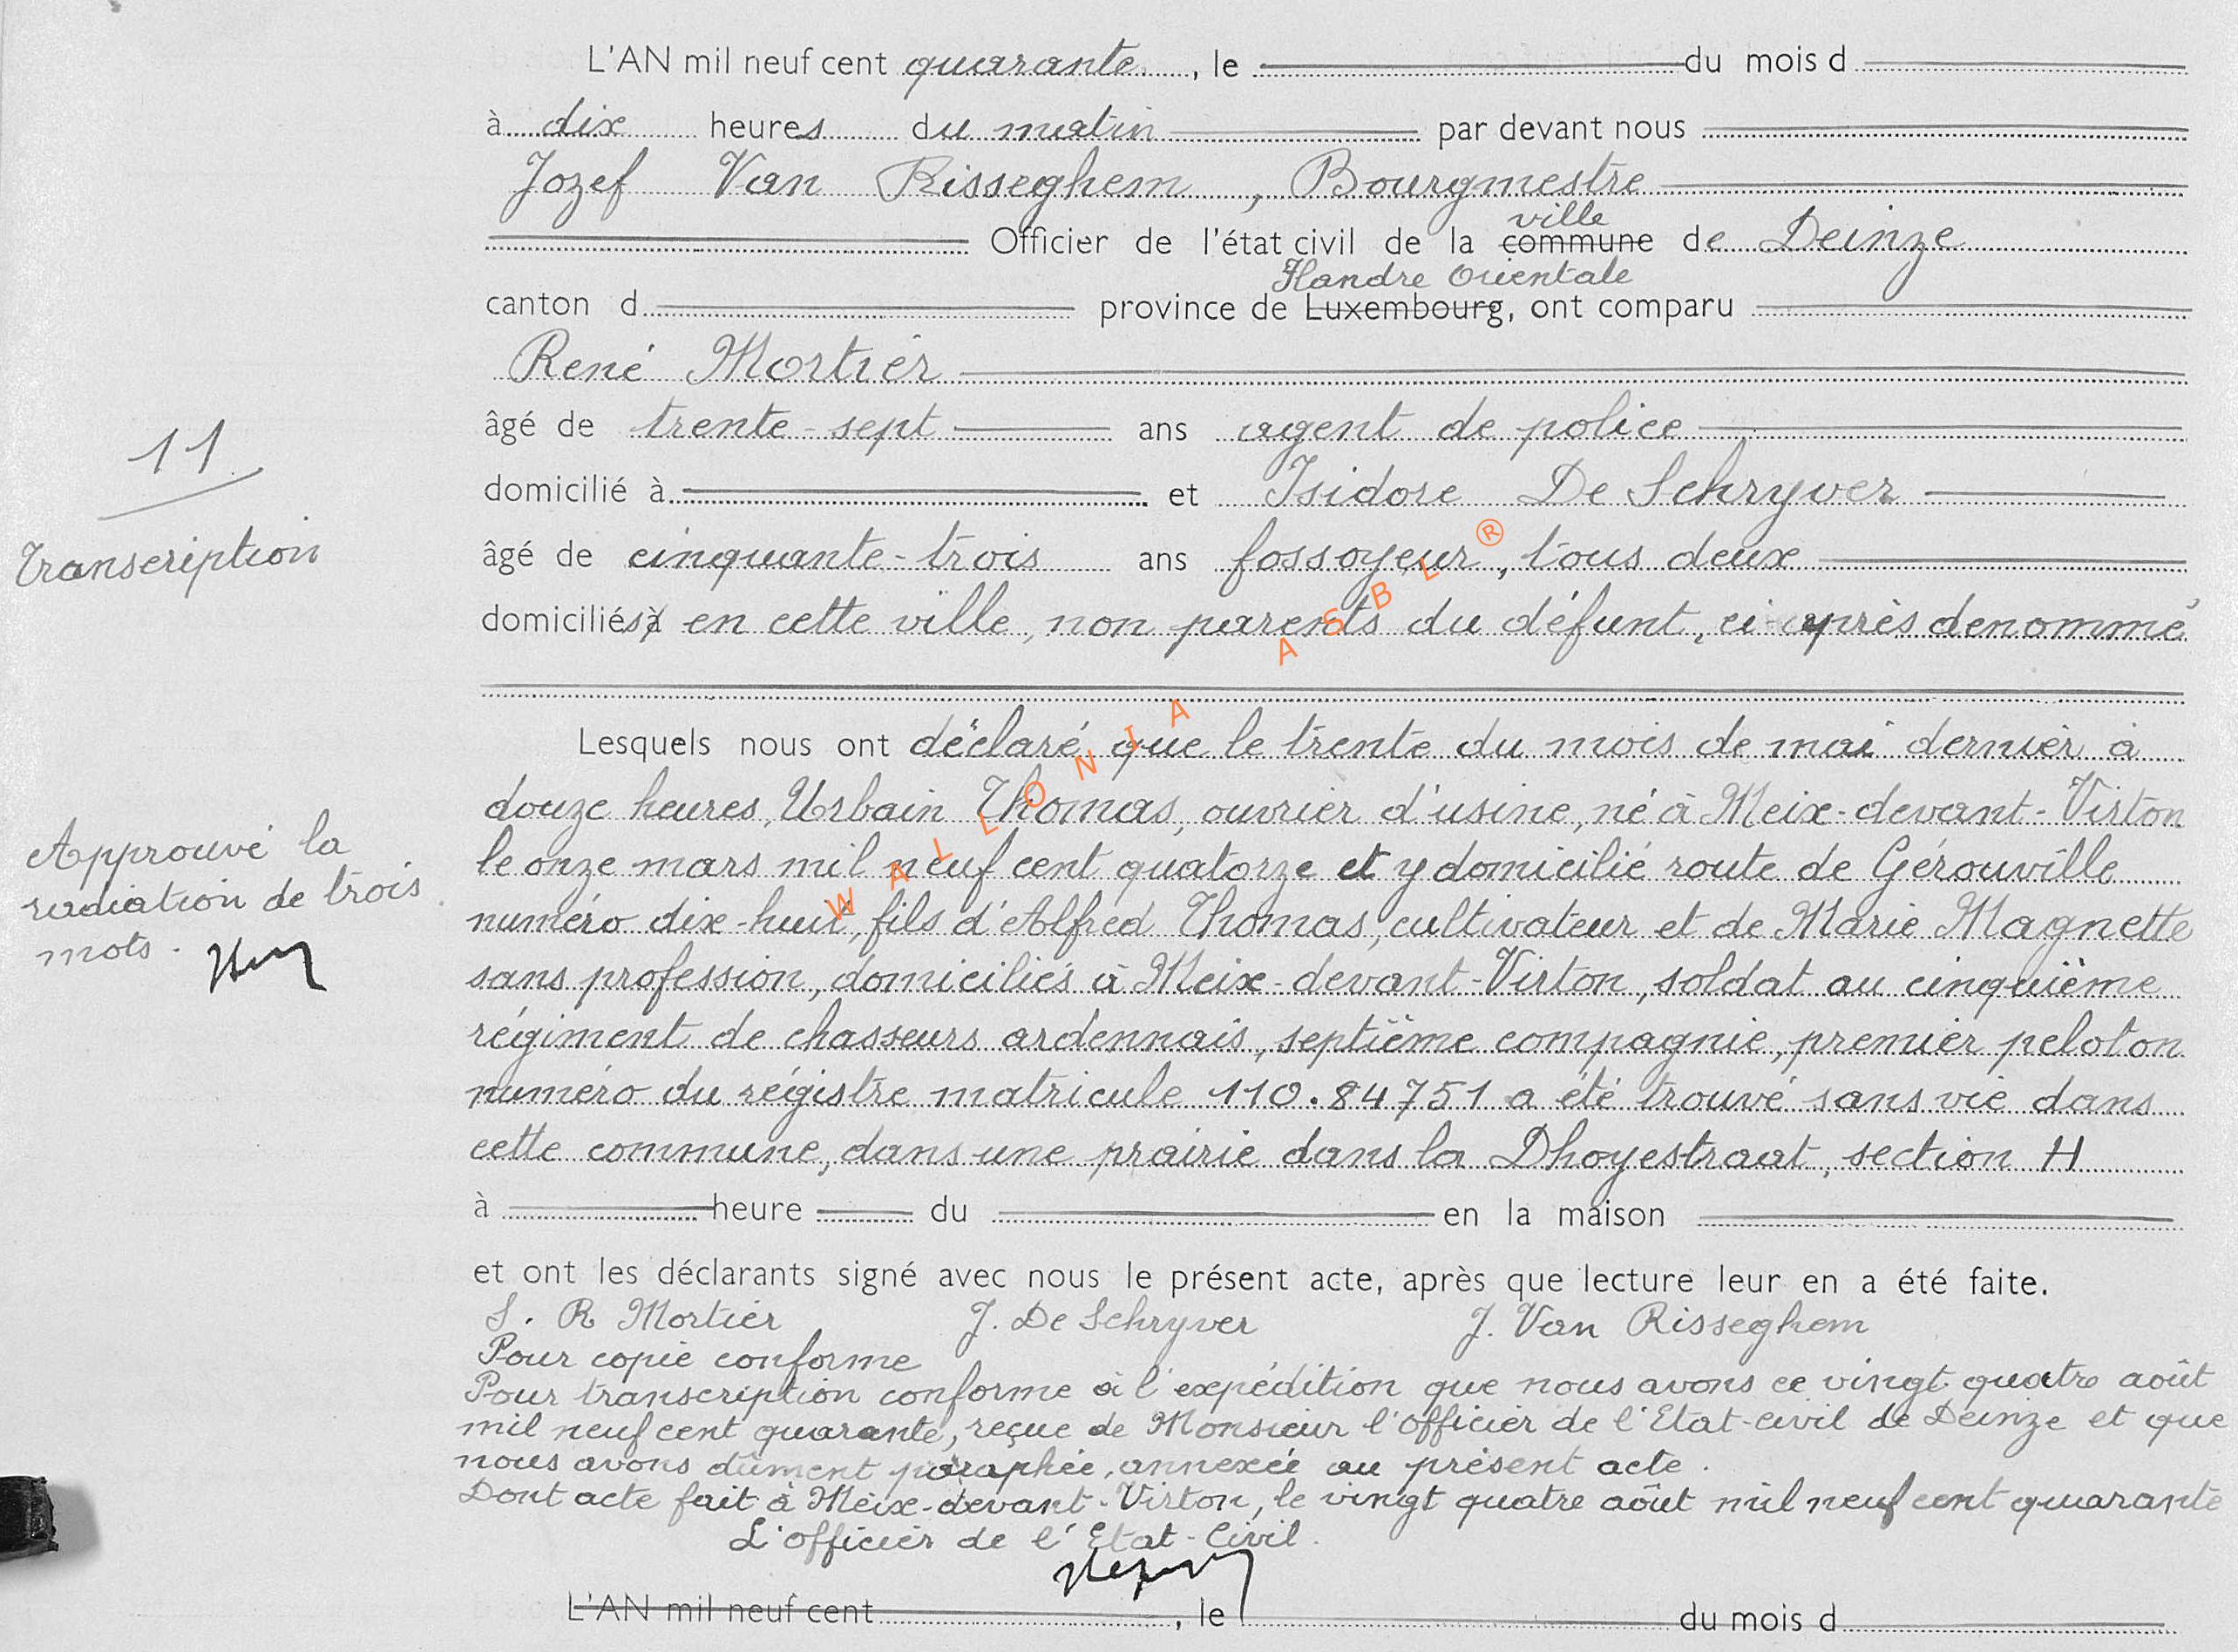 L'AN mil neuf cent quarante, le du mois d
à dix heures du matin par devant nous
Jozef Van Risseghem, Bourgmestre
ville
Officier de l'état civil de la commune de Deinze
Flandre Orientale
canton d province de Luxembourg, ont comparu
René Mortier
âgé de trente-sept ans agent de police
11
domicilié à et Isidore De Schryver
Transcription
âgé de cinquante-trois ans fossoyeur, tous deux
domiciliés à en cette ville, non parents du défunt, ci-après denommé
Lesquels nous ont déclaré que le trente du mois de mai dernier à
douze heures, Urbain Thomas, ouvrier d'usine, né à Meix-devant-Virton
Approuvé la
radiation de trois
mots.
le onze mars mil neuf cent quatorze et y domicilié route de Gérouville
numéro dix-huit, fils d'Alfred Thomas, cultivateur et de Marie Magnette
sans profession, domiciliés à Meix-devant-Virton, soldat au cinquième
régiment de chasseurs ardennais, septième compagnie, premier peloton
numéro du régistre matricule 110.84751 a été trouvé sans vie dans
cette commune, dans une prairie dans la Dhoyestraat, section H
à heure du en la maison
et ont les déclarants signé avec nous le présent acte, après que lecture leur en a été faite.
S. R Mortier J. De Schryver J. Van Risseghem
Pour copie conforme
Pour transcription conforme à l'expédition que nous avons ce vingt quatre août
mil neuf cent quarante, reçue de Monsieur l'officier de l'Etat-civil de Deinze et que
nous avons dûment paraphée, annexée au présent acte.
Dont acte fait à Meix-devant-Virton, le vingt quatre août mil neuf cent quarante
L'officier de l'Etat-Civil.
L'AN mil neuf cent, le du mois d
WALLONIA ASBL ®